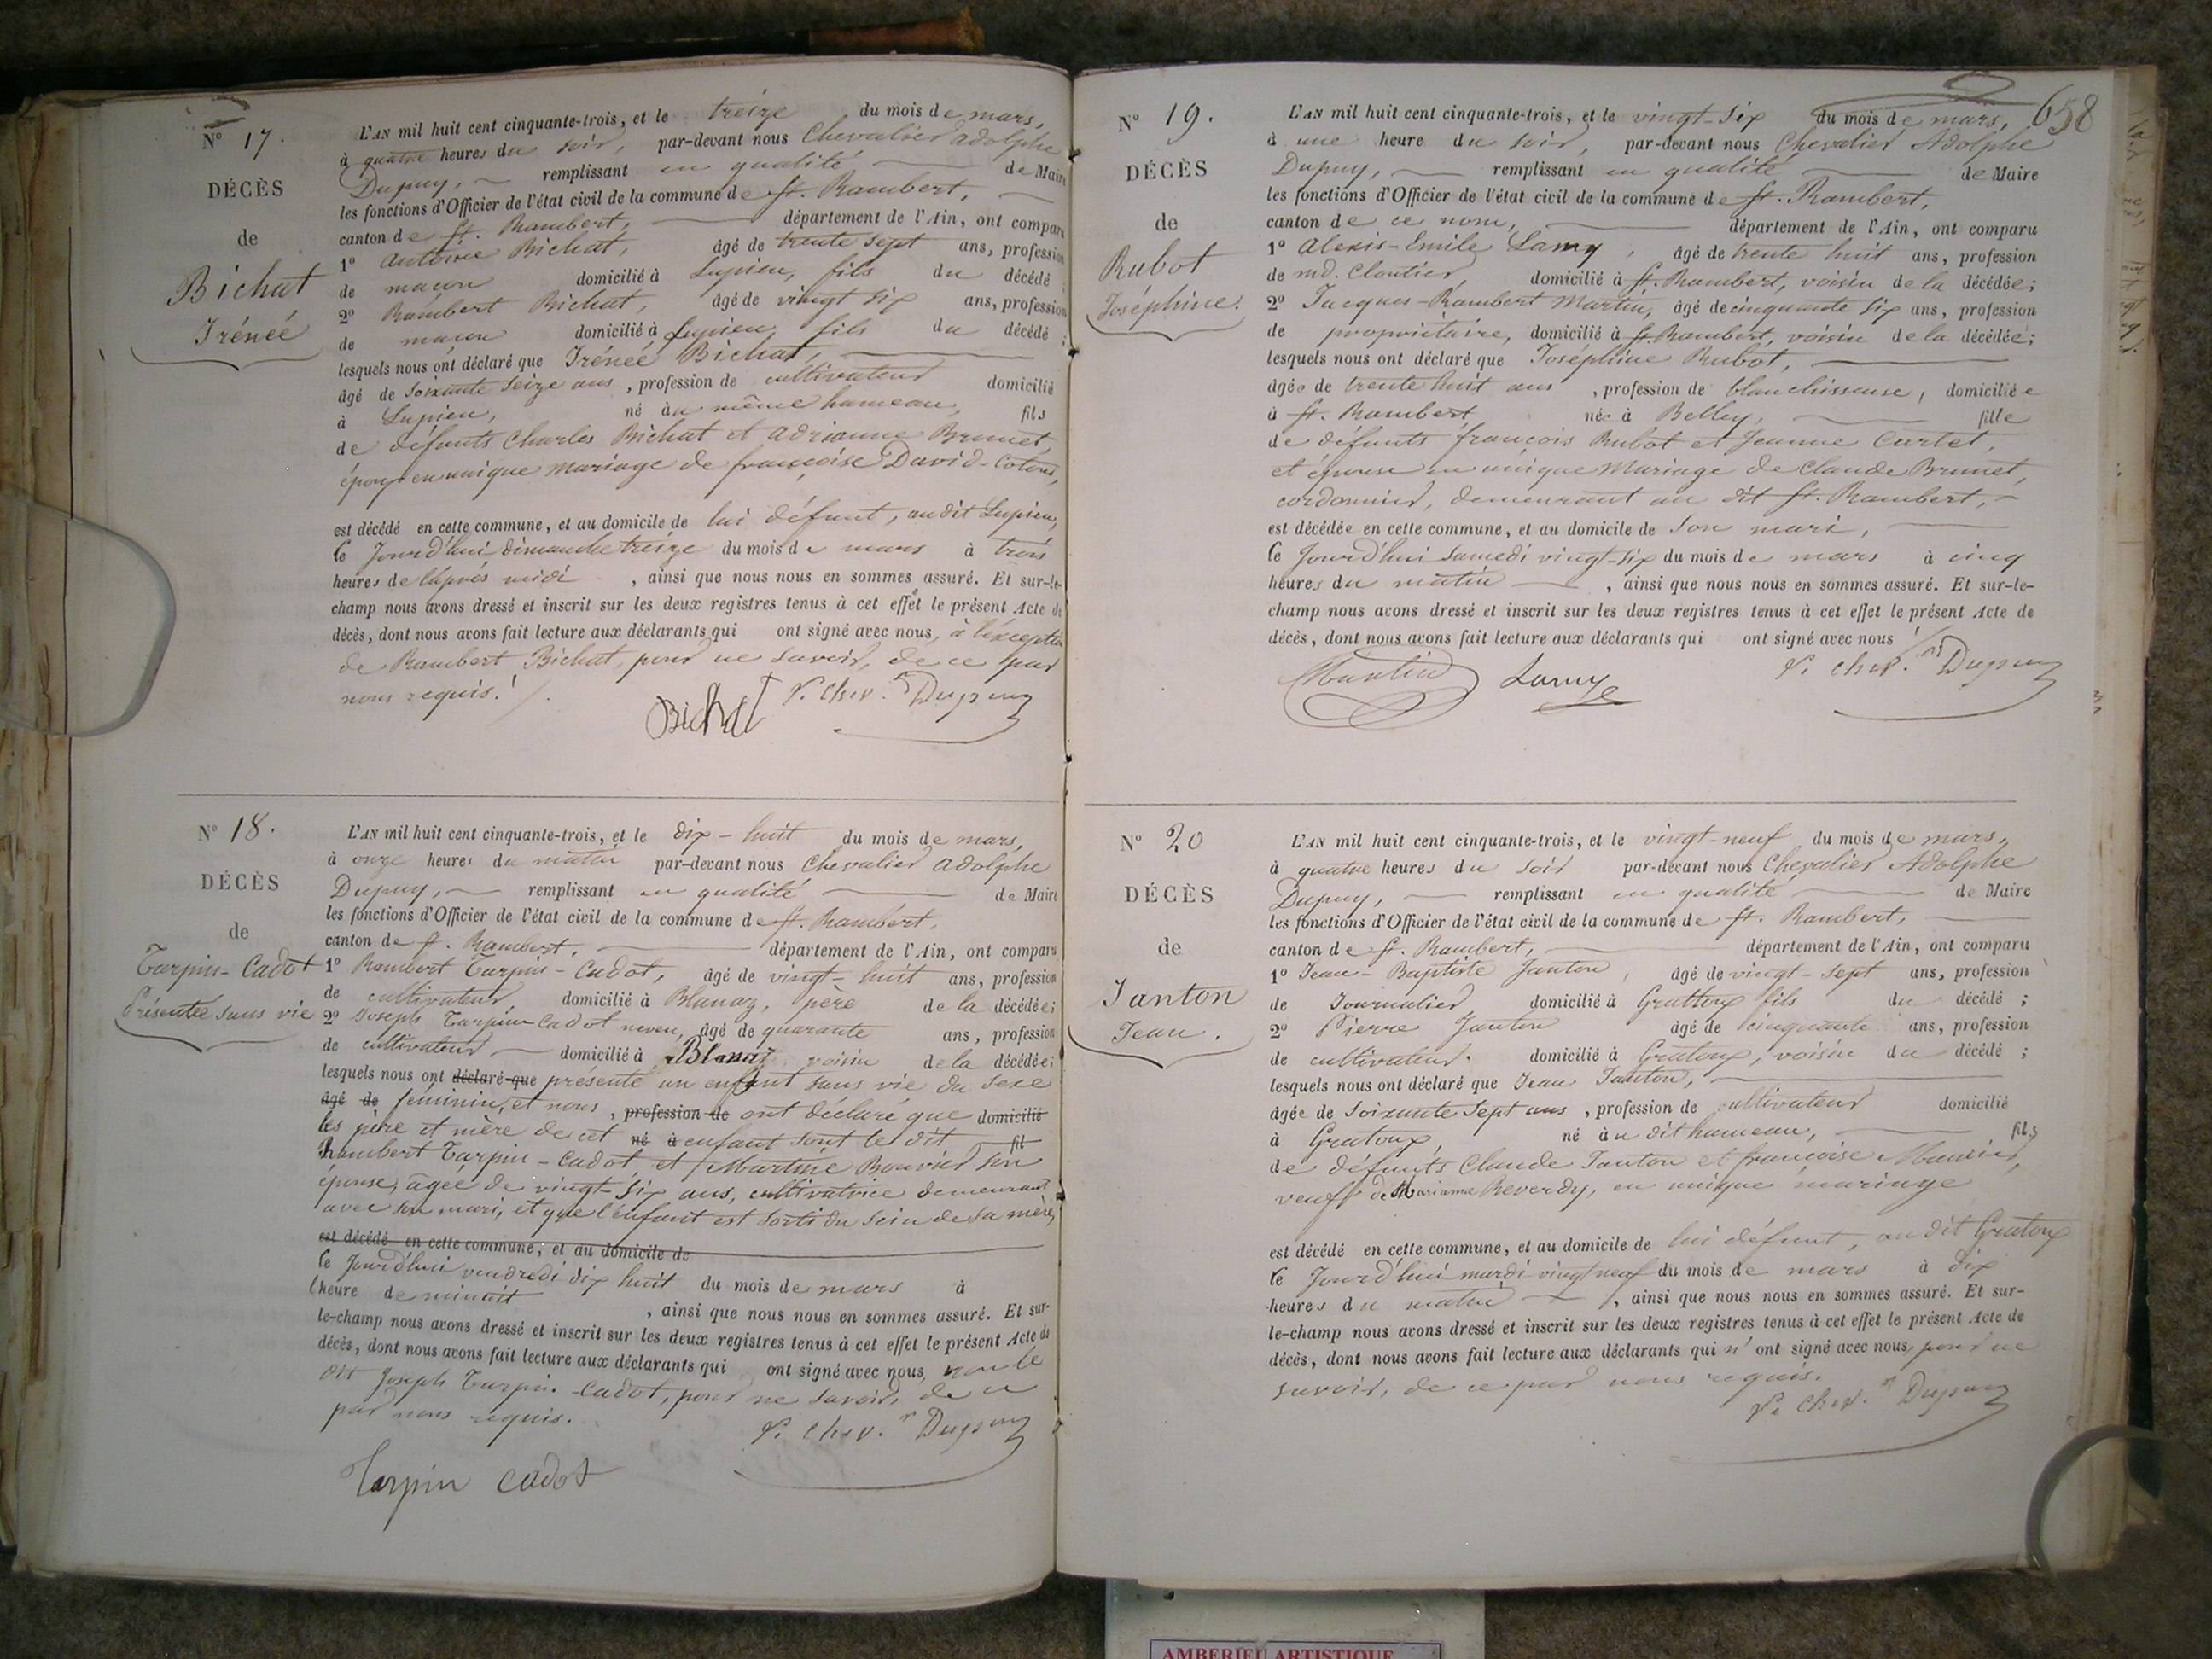 N° 17.
DÉCÈS
de
Bichat
Irénée
L'AN mil huit cent cinquante-trois, et le treize du mois de mars,
à quatre heures du soir, par-devant nous Chevalier Adolphe
Dupuy, remplissant en qualité de Maire
les fonctions d'Officier de l'état civil de la commune de St. Rambert,
canton de St. Rambert, département de l'Ain, ont comparu
1° Antoine Bichat, âgé de trente sept ans, profession
de maçon domicilié à Lupieu, fils du décédé
2° Rambert Bichat, âgé de vingt six ans, profession
de maçon domicilié à Lupieu, fils du décédé ;
lesquels nous ont déclaré que Irénée Bichat,
âgé de soixante seize ans, profession de cultivateur domicilié
à Lupieu, né au même hameau, fils
de défunts Charles Bichat et Adrianne Brunet,
époux en unique mariage de françoise David-
est décédé en cette commune, et au domicile de lui défunt, au dit Lupieu,
le Jourd'hui dimanche treize du mois de mars à trois
heures de l'après midi, ainsi que nous nous en sommes assuré. Et sur-le-
champ nous avons dressé et inscrit sur les deux registres tenus à cet effet le présent Acte de
décès, dont nous avons fait lecture aux déclarants qui ont signé avec nous, à l'exception
de Rambert Bichat, pour ne savoir, de ce par
nous requis.
Bichat P. Chev. Dupuy
N° 18.
DÉCÈS
de
Tarpin-Cadot
Présentée sans vie
L'AN mil huit cent cinquante-trois, et le dix-huit du mois de mars,
à onze heures du matin par-devant nous Chevalier Adolphe
Dupuy, remplissant en qualité de Maire
les fonctions d'Officier de l'état civil de la commune de St. Rambert,
canton de St. Rambert, département de l'Ain, ont comparu
1° Rambert Tarpin-Cadot, âgé de vingt-huit ans, profession
de cultivateur, domicilié à Blanaz, père de la décédée;
2° Joseph Tarpin-Cadot neveu, âgé de quarante ans, profession
de cultivateur domicilié à Blanaz voisin de la décédée;
lesquels nous ont déclaré que présenté un enfant sans vie du sexe
âgé de féminin, et nous, profession de ont déclaré que domicilié
les père et mère de cet né à enfant sont le dit fil
Rambert Tarpin-Cadot et Martine Bouvier son
épouse, âgée de vingt-six ans, cultivatrice demeurant
avec son mari, et que l'enfant est sorti du sein de sa mère,
est décédé en cette commune, et au domicile de
le Jourd'hui vendredi dix huit du mois de mars à
l'heure de minuit, ainsi que nous nous en sommes assuré. Et sur-
le-champ nous avons dressé et inscrit sur les deux registres tenus à cet effet le présent Acte de
décès, dont nous avons fait lecture aux déclarants qui ont signé avec nous, non le
dit Joseph Tarpin-Cadot, pour ne savoir, de ce
par nous requis.
P. Chev. Dupuy
Tarpin Cadot
658
N° 19.
DÉCÈS
de
Rubot
Joséphine.
L'AN mil huit cent cinquante-trois, et le vingt-six du mois de mars,
à une heure du soir, par-devant nous Chevalier Adolphe
Dupuy, remplissant en qualité de Maire
les fonctions d'Officier de l'état civil de la commune de St. Rambert,
canton de ce nom, département de l'Ain, ont comparu
1° Alexis-Emile Lamy, âgé de trente huit ans, profession
de md. Cloutier domicilié à St. Rambert, voisin de la décédée;
2° Jacques-Rambert Martin, âgé de cinquante six ans, profession
de propriétaire, domicilié à St. Rambert, voisin de la décédée;
lesquels nous ont déclaré que Joséphine Rubot,
âgée de trente huit ans, profession de blanchisseuse, domiciliée
à St. Rambert née à Belley, fille
de défunts françois Rubot et Jeanne Curtet,
et épouse en unique mariage de Claude Brunet,
cordonnier, demeurant au dit St. Rambert,
est décédée en cette commune, et au domicile de son mari,
le Jourd'hui samedi vingt-six du mois de mars à cinq
heures du matin, ainsi que nous nous en sommes assuré. Et sur-le-
champ nous avons dressé et inscrit sur les deux registres tenus à cet effet le présent Acte de
décès, dont nous avons fait lecture aux déclarants qui ont signé avec nous
Martin Lamy P. Chev. Dupuy
N° 20
DÉCÈS
de
Janton
Jean.
L'AN mil huit cent cinquante-trois, et le vingt-neuf du mois de mars,
à quatre heures du soir par-devant nous Chevalier Adolphe
Dupuy, remplissant en qualité de Maire
les fonctions d'Officier de l'état civil de la commune de St. Rambert,
canton de St. Rambert, département de l'Ain, ont comparu
1° Jean-Baptiste Janton, âgé de vingt-sept ans, profession
de Journalier domicilié à Grattoux fils du décédé ;
2° Pierre Janton âgé de cinquante ans, profession
de cultivateur. domicilié à Gratoux, voisin du décédé ;
lesquels nous ont déclaré que Jean Janton,
âgée de soixante sept ans, profession de cultivateur domicilié
à Gratoux né au dit hameau, fils
de défunts Claude Janton et françoise
veuf de Marianne Reverdy, en unique mariage
est décédé en cette commune, et au domicile de lui défunt, au dit Gratoux
le Jourd'hui mardi vingt neuf du mois de mars à dix
heures du matin, ainsi que nous nous en sommes assuré. Et sur-
le-champ nous avons dressé et inscrit sur les deux registres tenus à cet effet le présent Acte de
décès, dont nous avons fait lecture aux déclarants qui n'ont signé avec nous, pour ne
savoir, de ce par nous requis.
P. Chev. Dupuy
AMBERIEU ARTISTIQUE